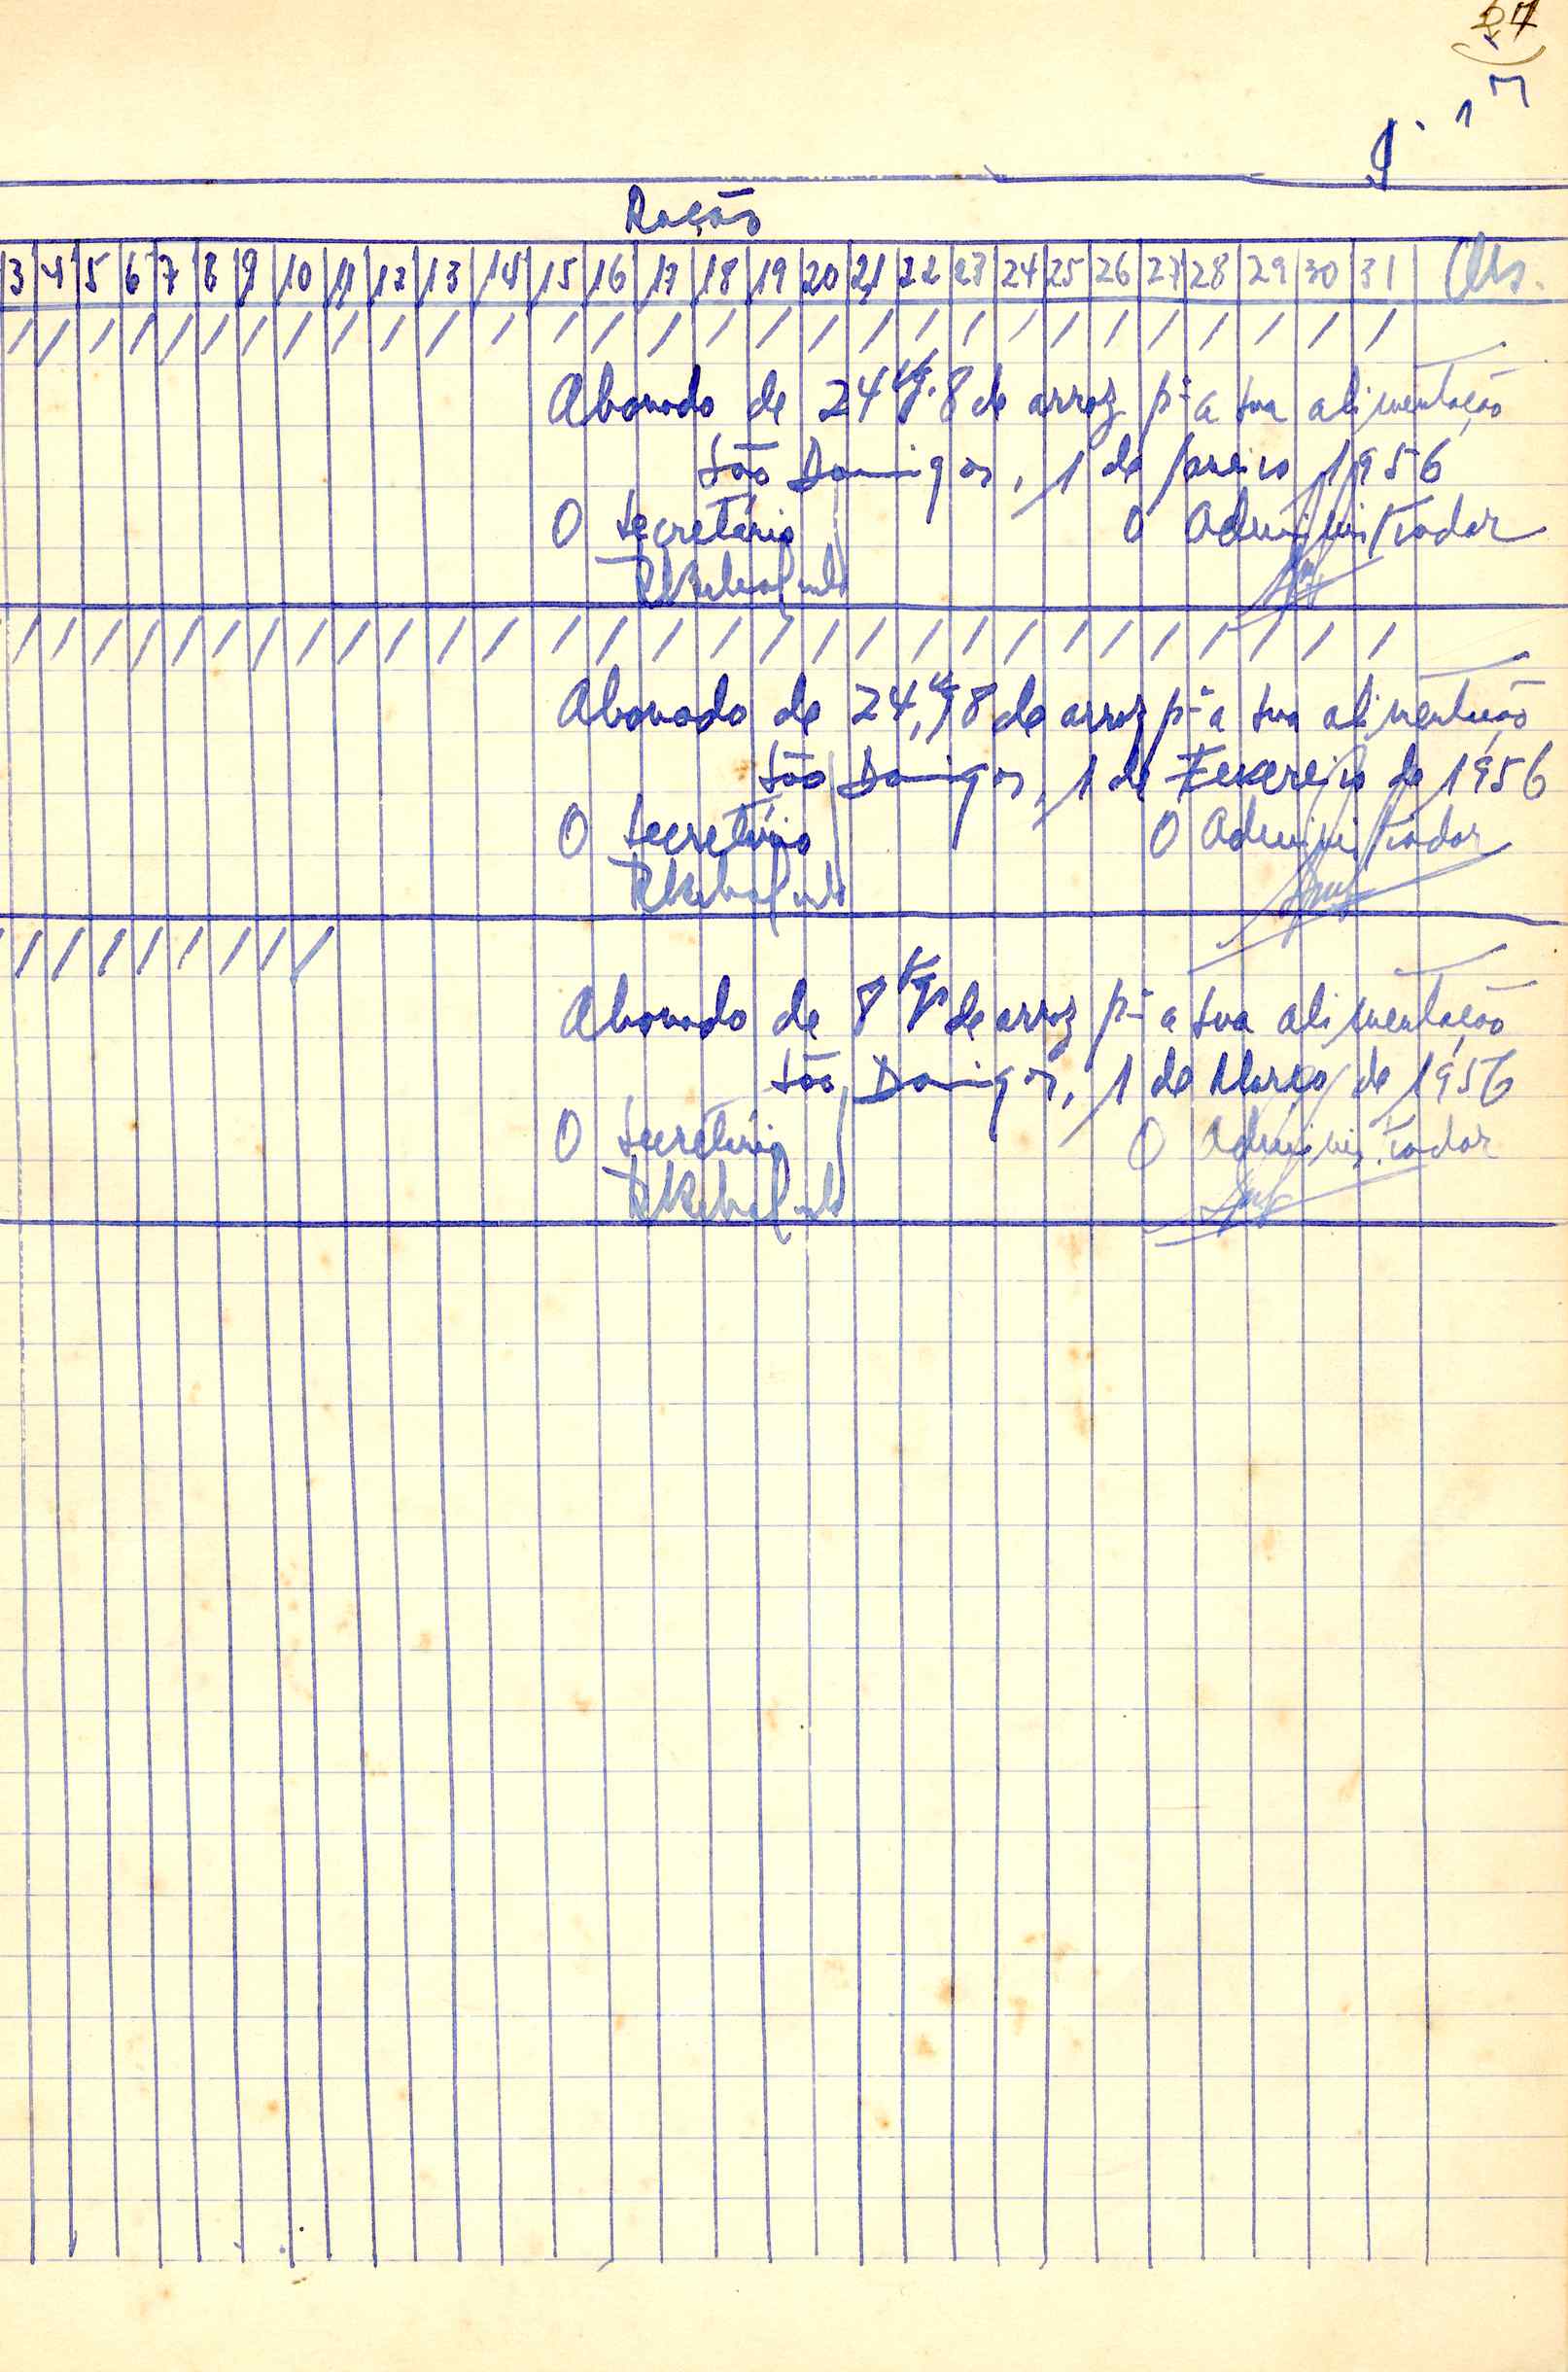 27
Ração
3 4 5 6 7 8 9 10 11 12 13 14 15 16 17 18 19 20 21 22 23 24 25 26 27 28 29 30 31 Obs.
/ / / / / / / / / / / / / / / / / / / / / / / / / / / / /
Abonado de 24,kg.8 de arroz pª a sua alimentação
São Domigos, 1 de Janeiro 1956
O Secretário O Administrador
/ / / / / / / / / / / / / / / / / / / / / / / / / / / / /
Abonado de 24,kg8 de arroz pª a sua alimentação
São Domigos, 1 de Fevereiro de 1956
O Secretário O Administrador
/ / / / / / / /
Abonado de 8 kgs de arroz pª a sua alimentação
São Domigos, 1 de Março de 1956
O Secretário O Administrador